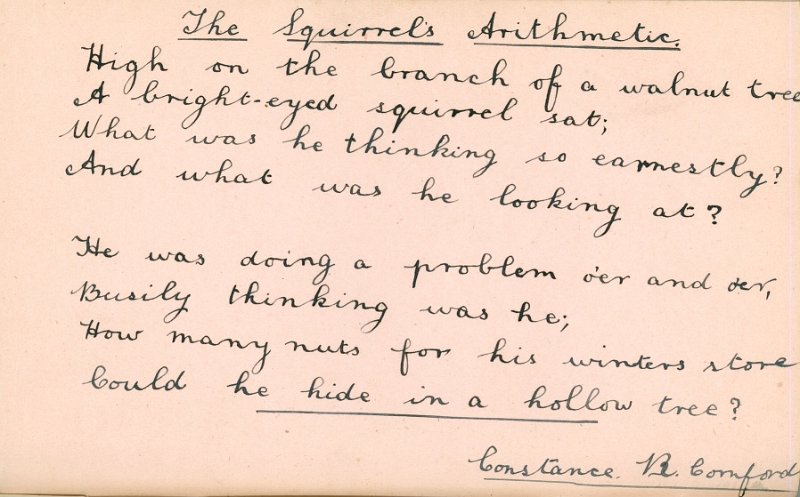 The Squirrel's Arithmetic.
High on the branch of a walnut tree
A bright-eyed squirrel sat;
What was he thinking so earnestly?
And what was he looking at?
He was doing a problem o'er and o'er,
Busily thinking was he;
How many nuts for his winters store
Could he hide in a hollow tree?
Constance. R. Cornford